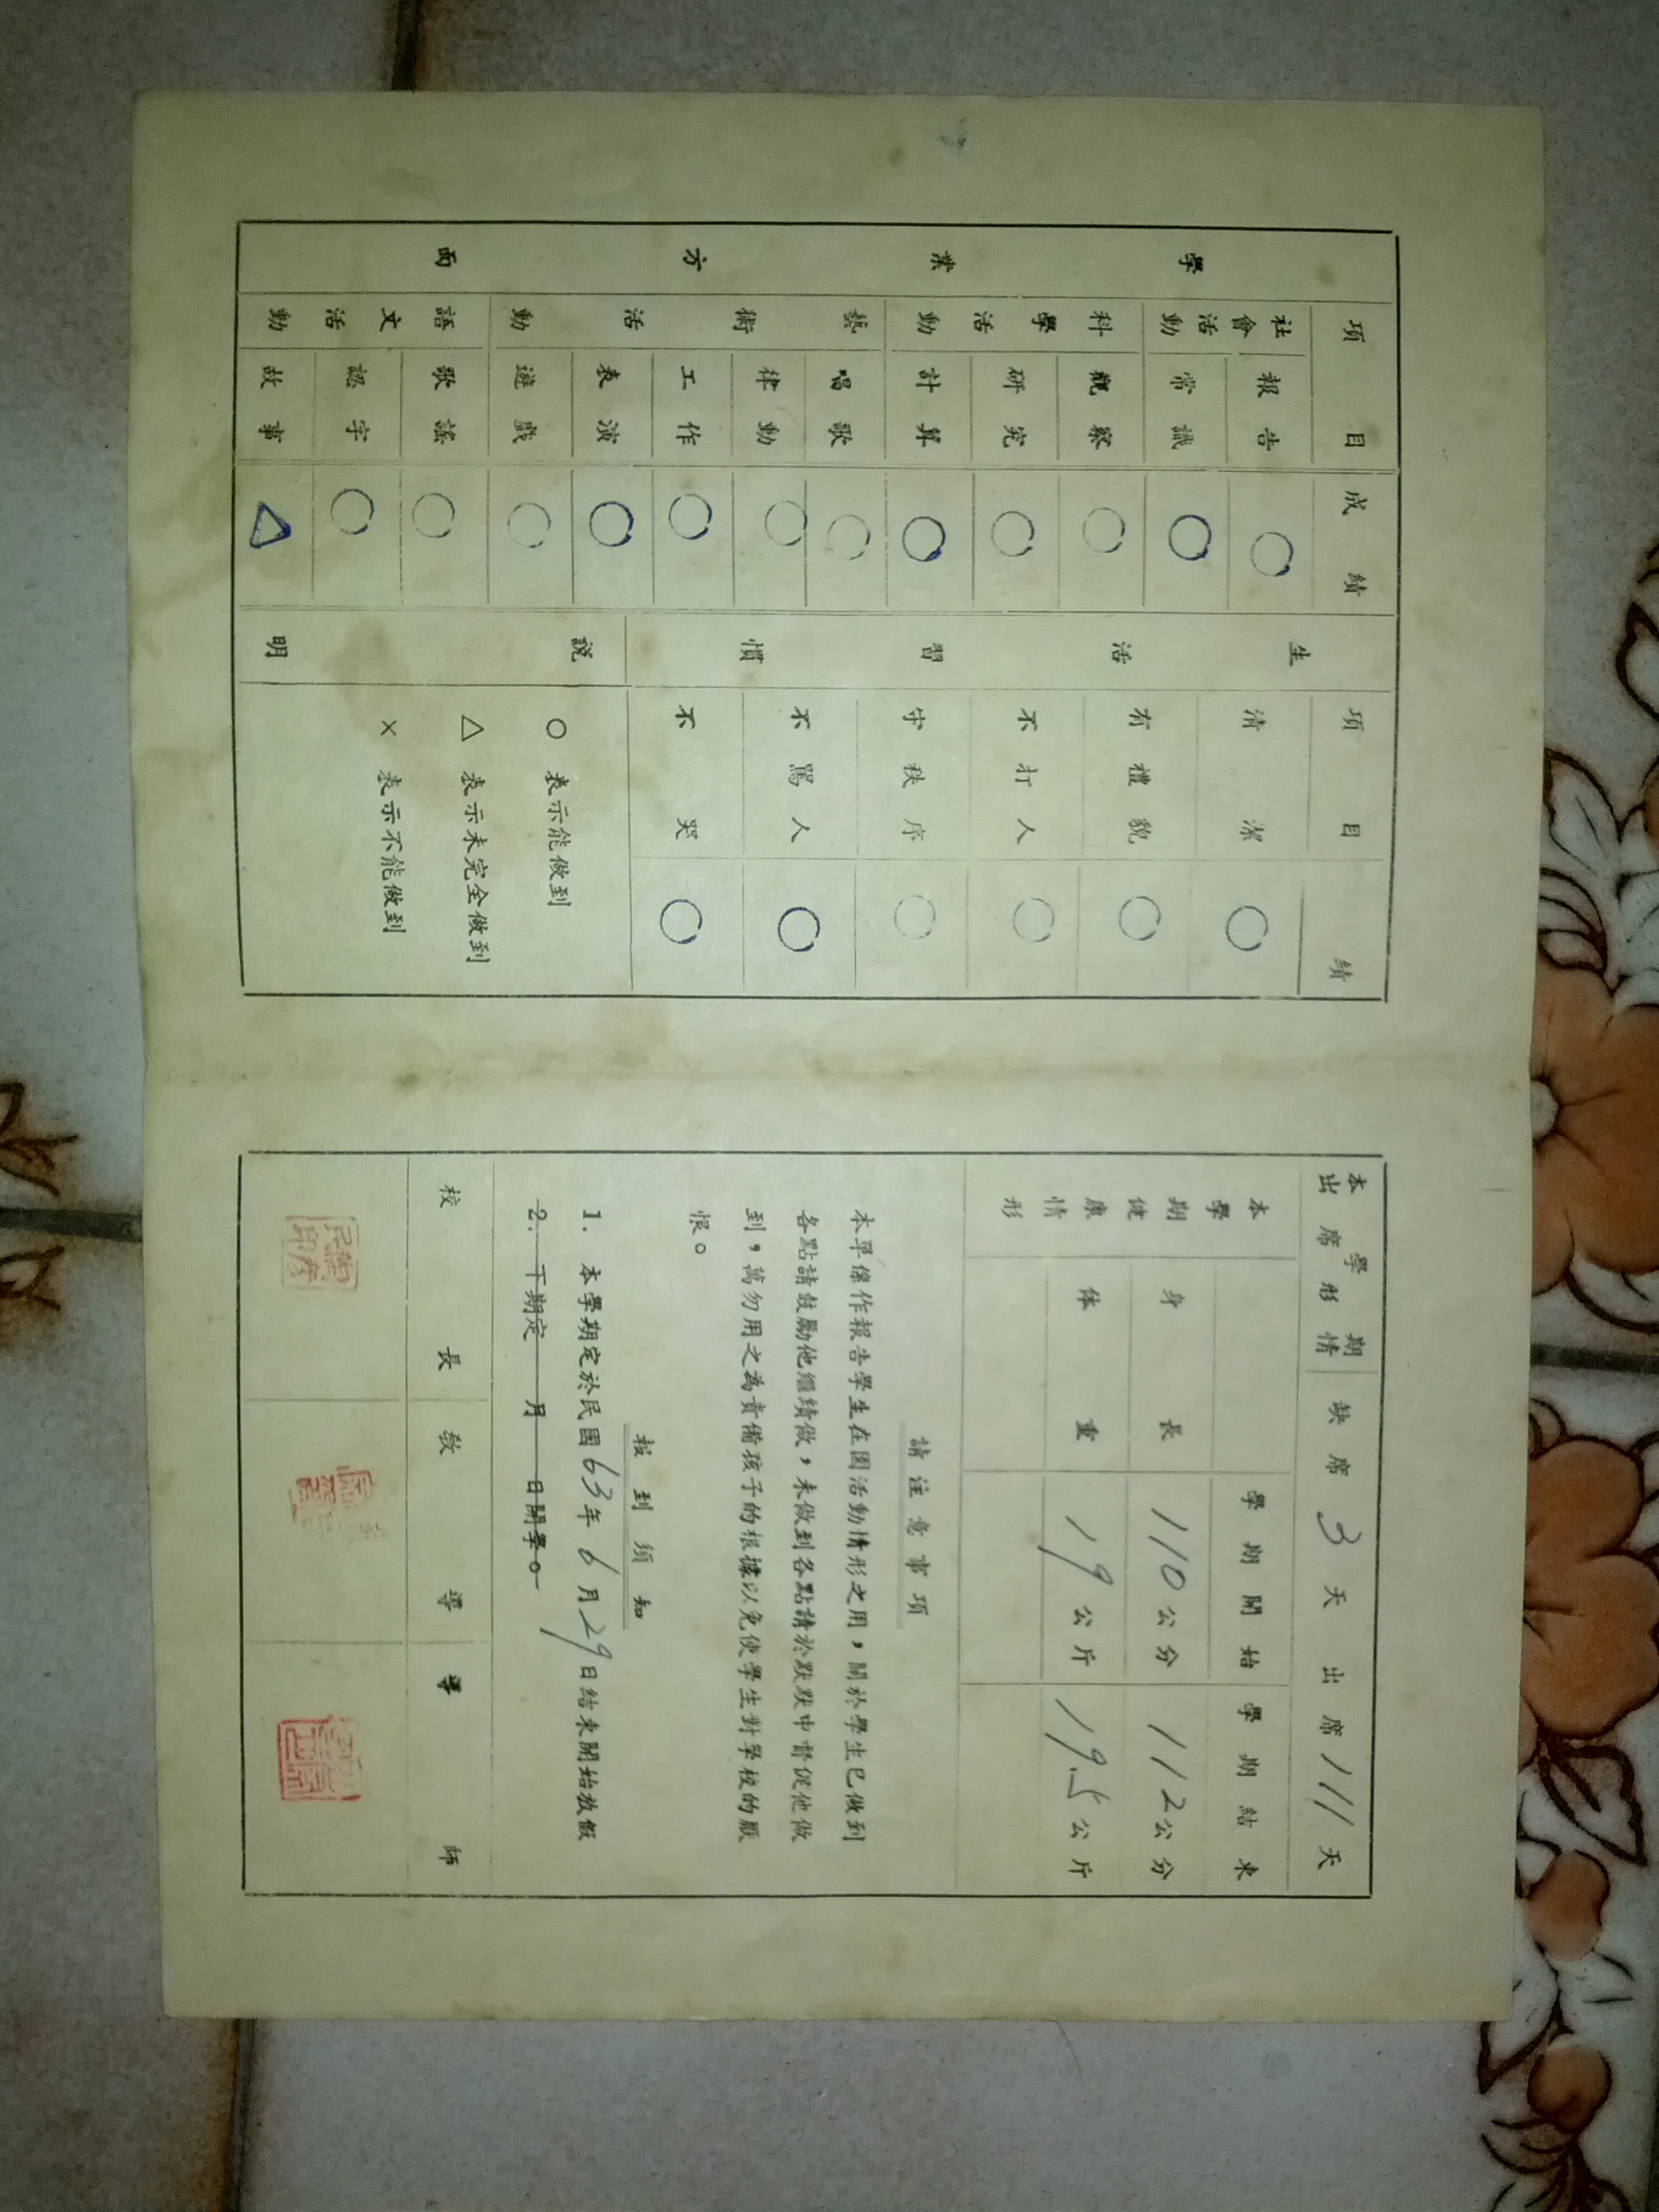 學業方面
項目 成績
社會活動 報告 ○
常識 ○
科學活動 觀察 ○
研究 ○
計算 ○
藝術活動 唱歌 ○
律動 ○
工作 ○
表演 ○
遊戲 ○
語文活動 歌謠 ○
認字 ○
故事 △
生活習慣
項目 績
清潔 ○
有禮貌 ○
不打人 ○
守秩序 ○
不罵人 ○
不哭 ○
說明
○ 表示能做到
△ 表示未完全做到
× 表示不能做到
本學期出席形情 缺席 3 天 出席 111 天
本學期健康情形 學期開始 學期結束
身長 110公分 112公分
体重 19公斤 19.5公斤
請注意事項
本單係作報告學生在園活動情形之用，關於學生已做到
各點請鼓勵他繼續做，未做到各點請於默默中督促他做
到，萬勿用之為責備孩子的根據以免使學生對學校的厭
恨。
報到須知
1. 本學期定於民國63年6月29日結束開始放假
2. 下期定 月 日開學。
校長 教導 導師